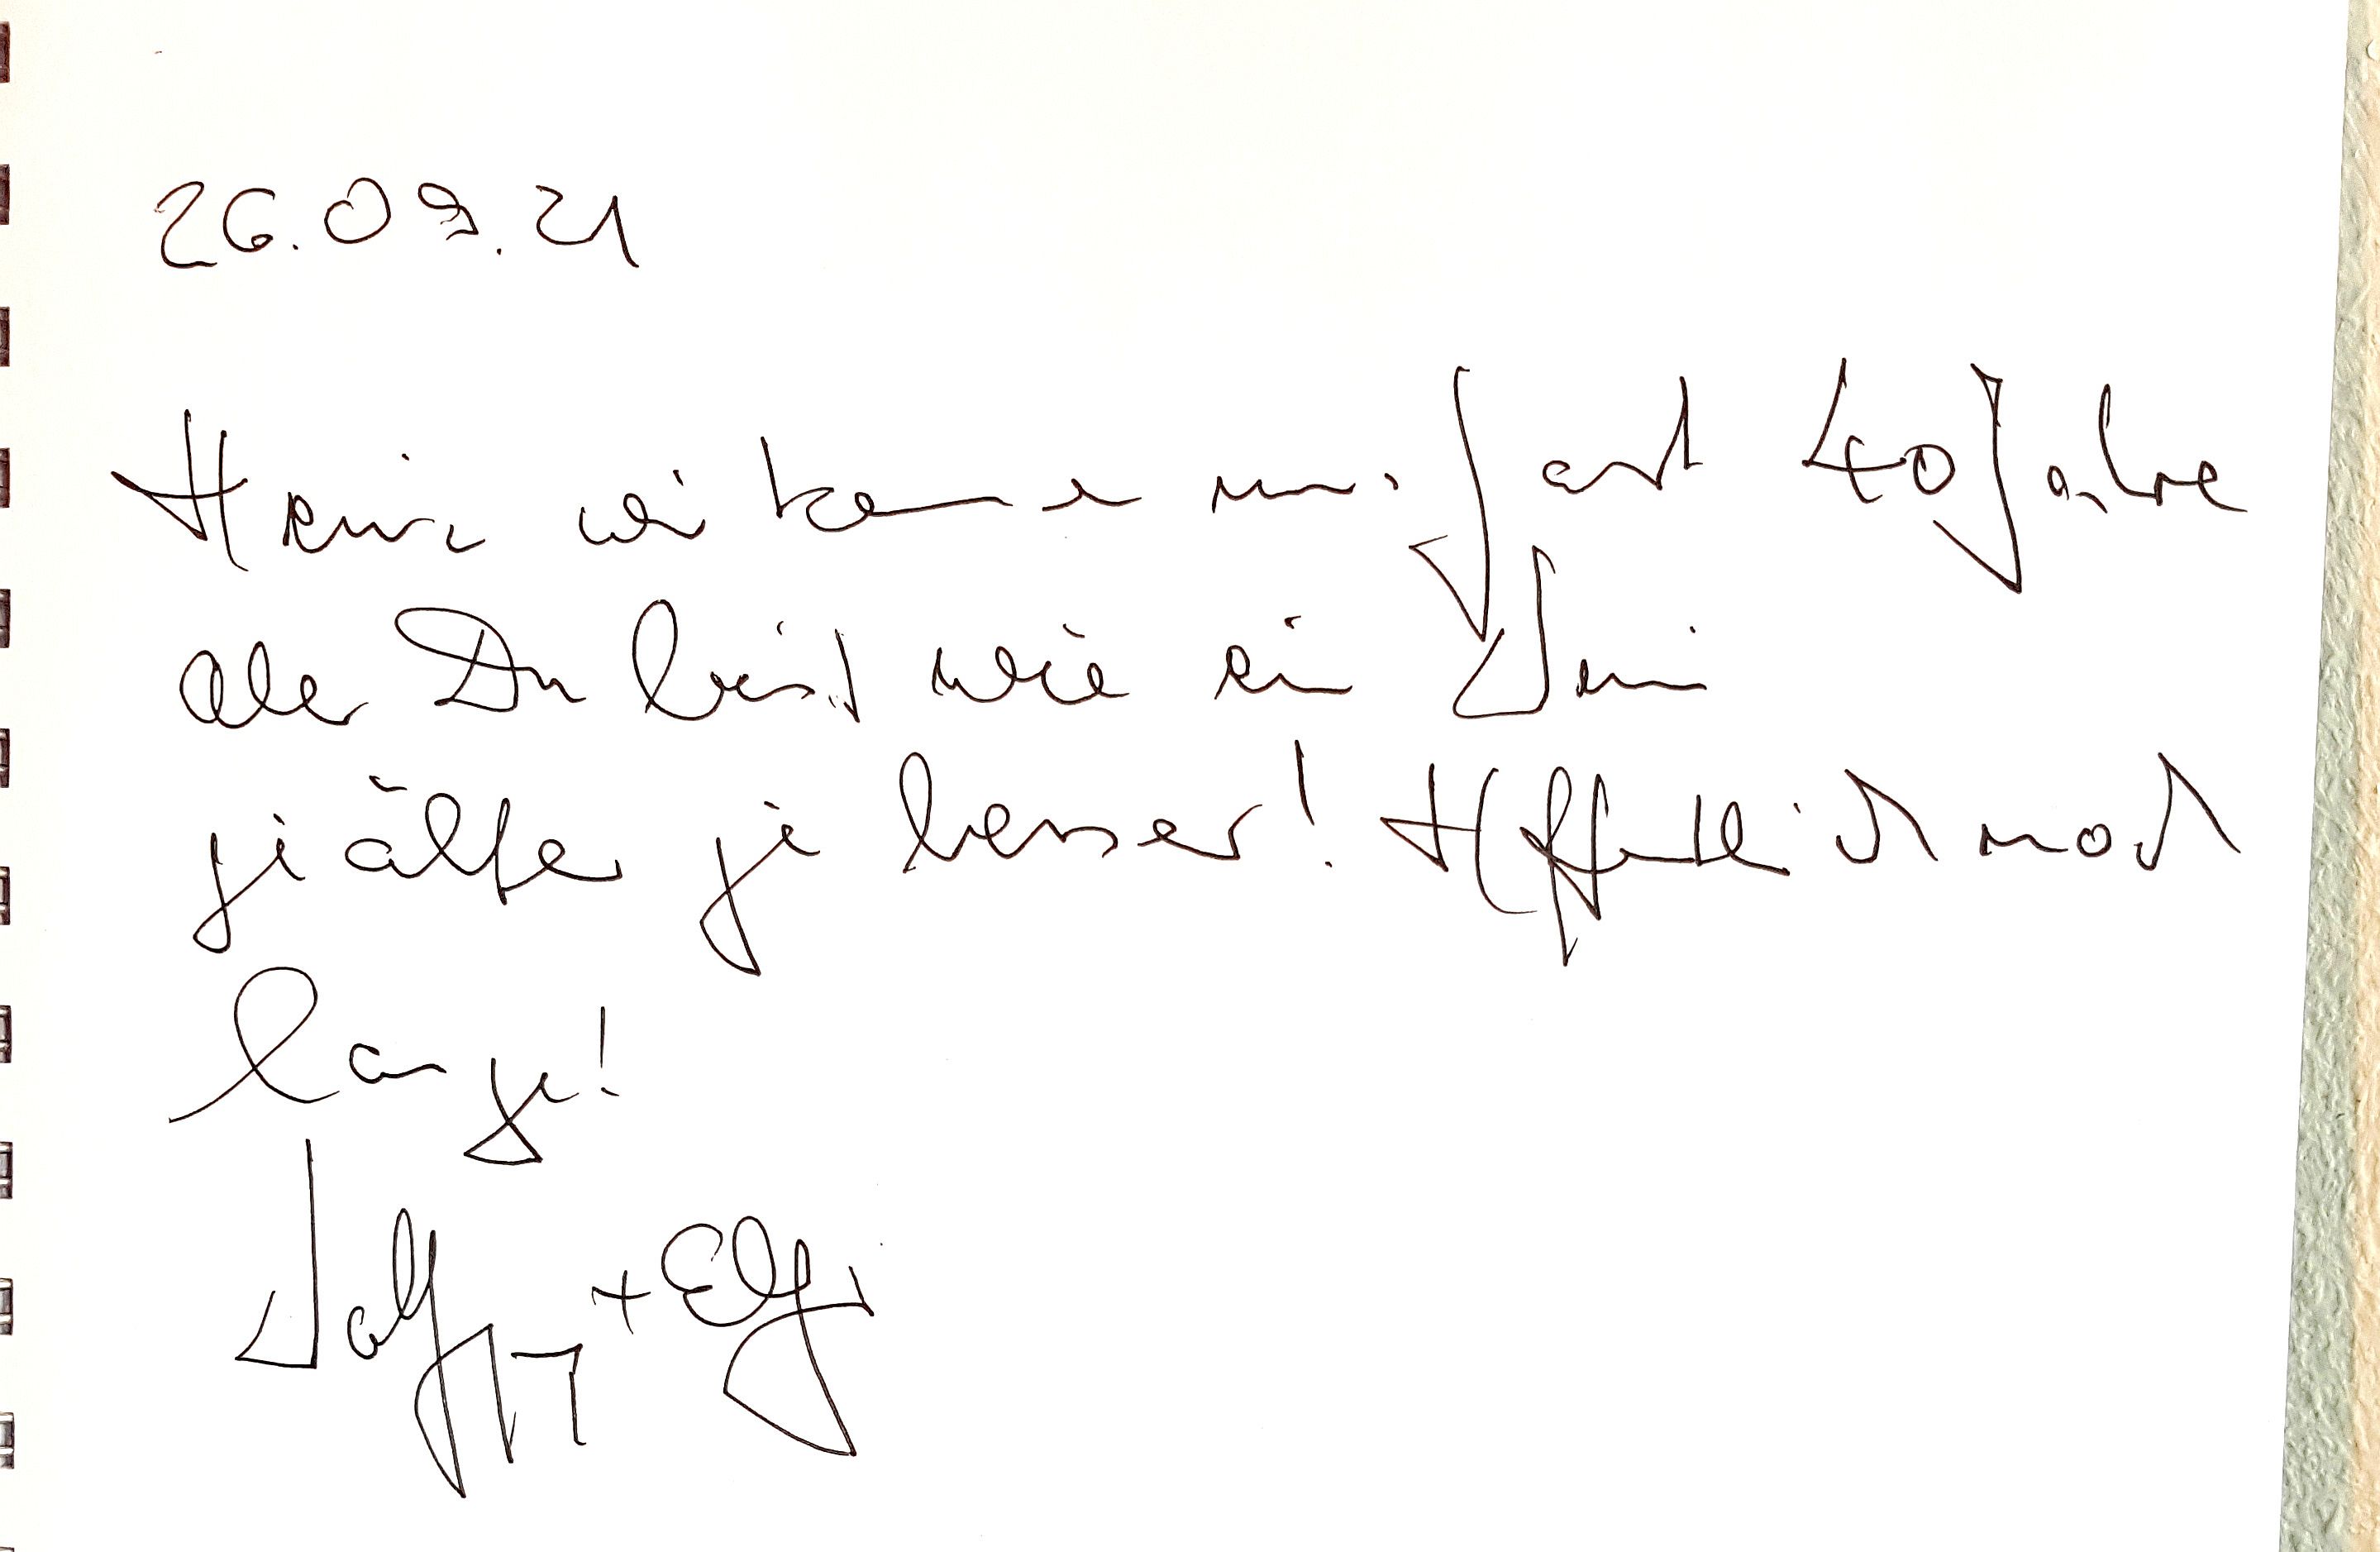 26.09.21
Heinz wir kennen uns fast 40 Jahre
aber Du bist wie ein Wein
je älter je besser! Hoffentlich noch
lange!
+ Elfi